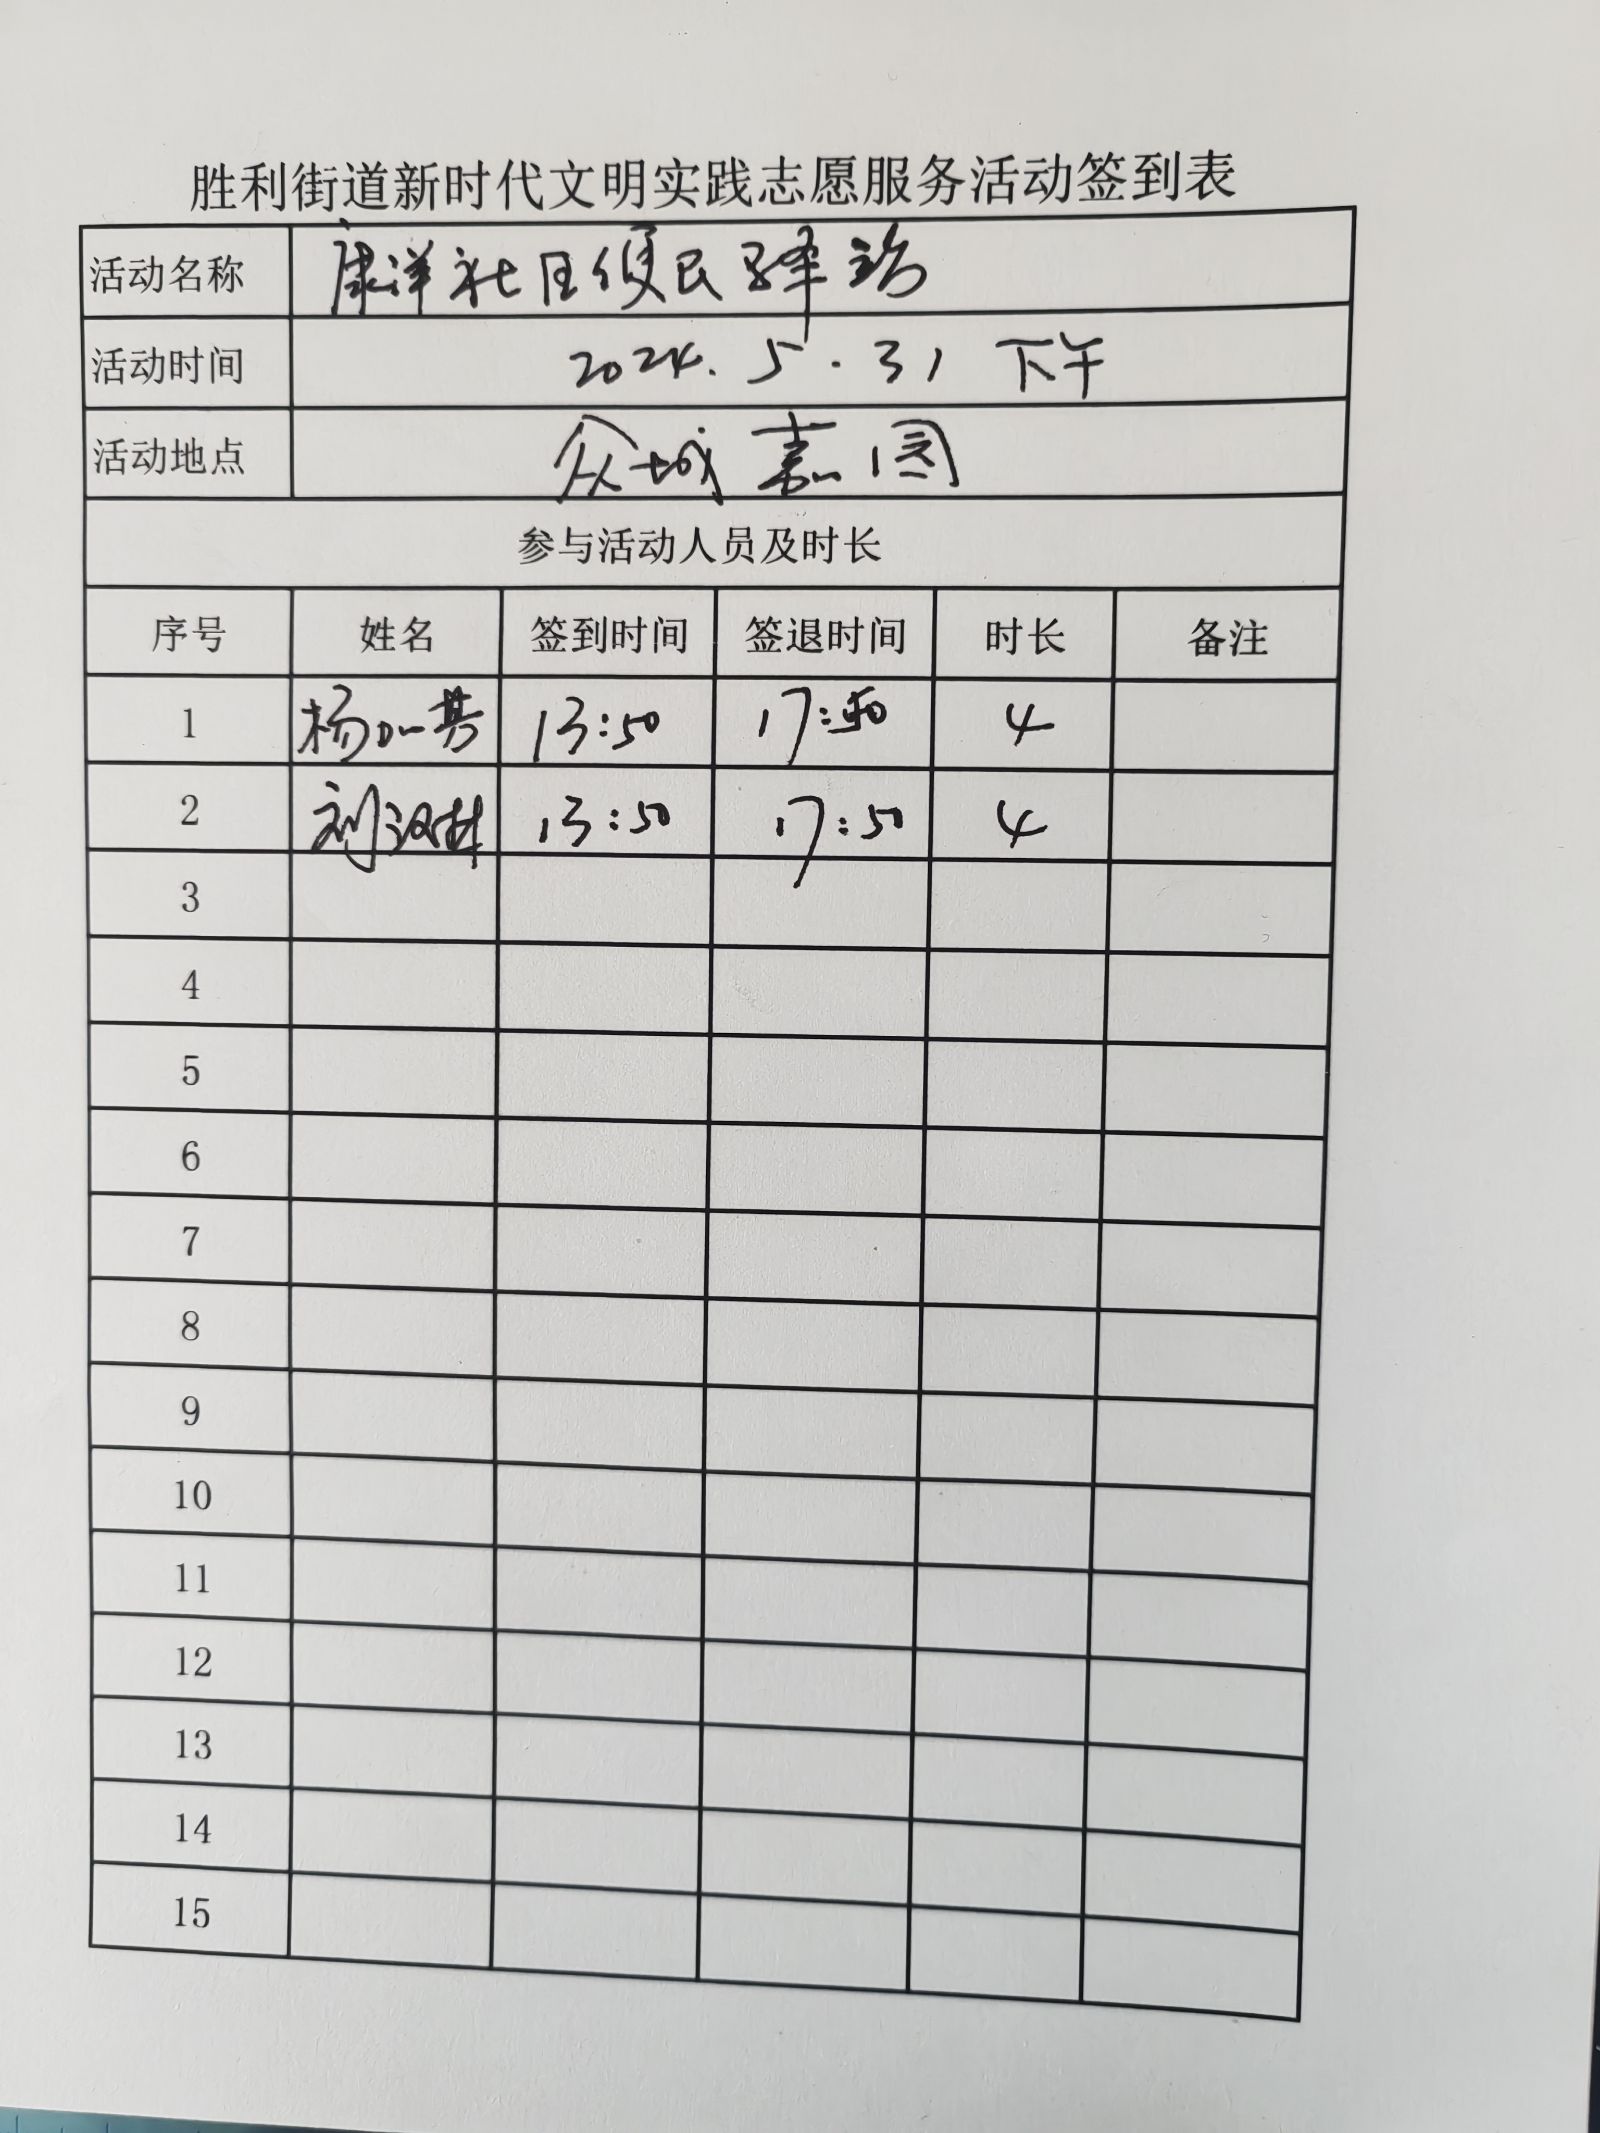 胜利街道新时代文明实践志愿服务活动签到表
活动名称 康洋社区便民驿站
活动时间 2024.5.31 下午
活动地点 众城嘉园
参与活动人员及时长
序号 姓名 签到时间 签退时间 时长 备注
1 杨 13:50 17:50 4
2 刘汉林 13:50 17:50 4
3
4
5
6
7
8
9
10
11
12
13
14
15